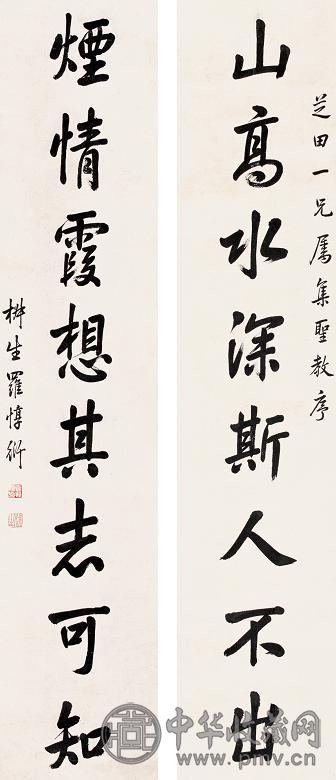 芝田一兄属集聖教序
山高水深斯人不出
煙情霞想其志可知
椒生羅惇衍
中华收藏网
www.pmv.cn